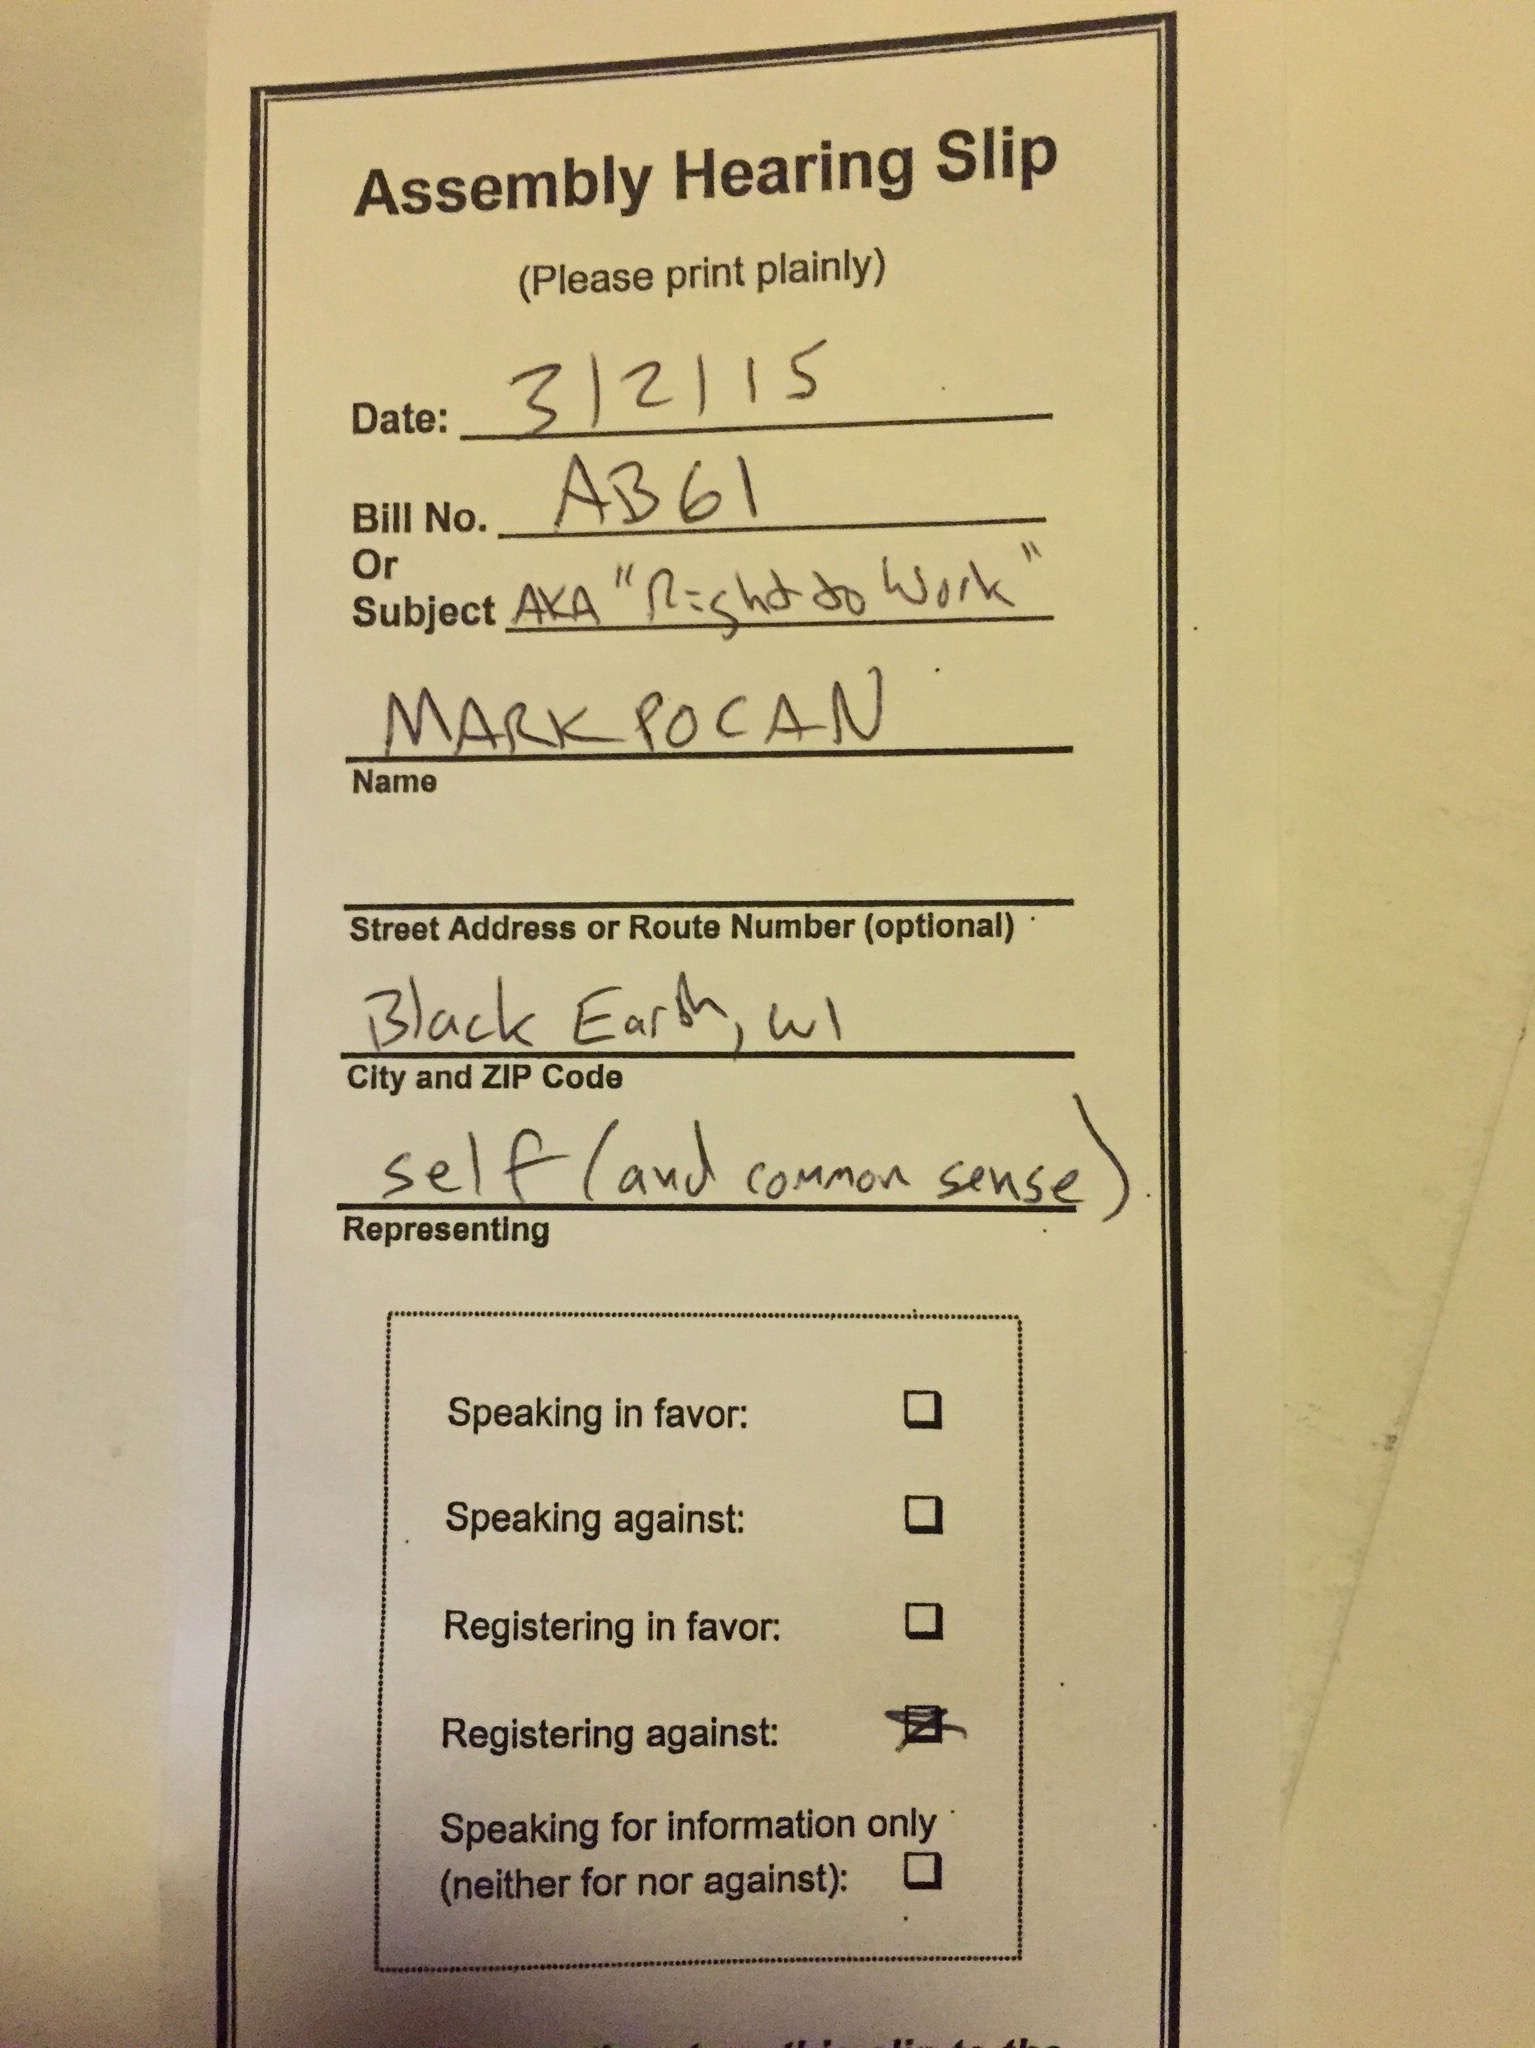 Assembly Hearing Slip
(Please print plainly)
Date: 3/2/15
Bill No. AB61
Or
Subject AKA "Right to Work"
MARK POCAN
Name
Street Address or Route Number (optional)
Black Earth, WI
City and ZIP Code
self (and common sense)
Representing
Speaking in favor:
Speaking against:
Registering in favor:
Registering against:
Speaking for information only
(neither for nor against):
this slip to the